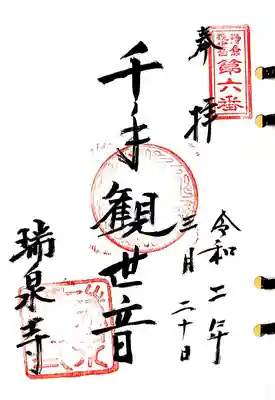 鎌倉
観音
第六番
奉拝
令和二年
三月二十日
千手観世音
瑞泉寺